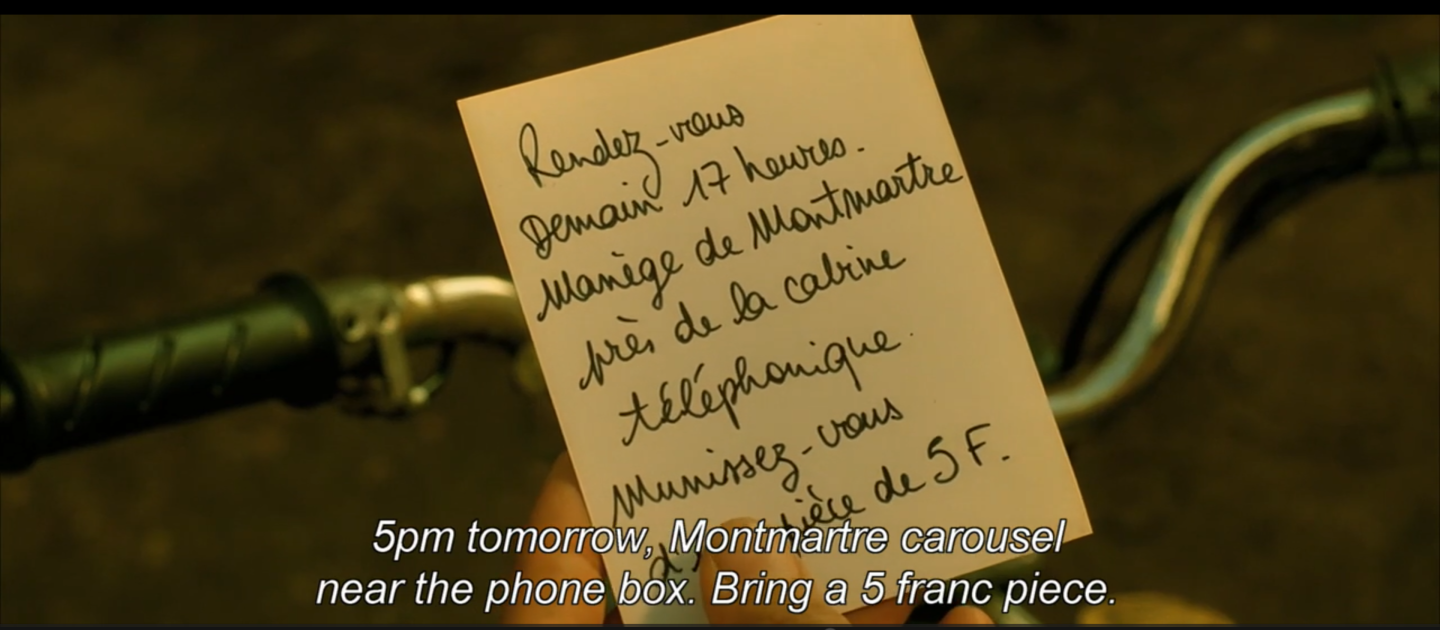 Rendez-vous
Demain 17 heures.
Manège de Montmartre
près de la cabine
téléphonique.
Munissez-vous
pièce de 5 F.
5pm tomorrow, Montmartre carousel
near the phone box. Bring a 5 franc piece.